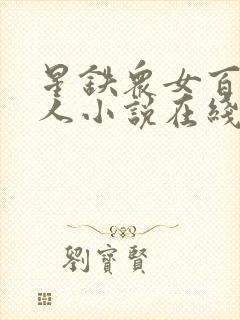 星鉄衆女百
人小說在綫
劉寶賢